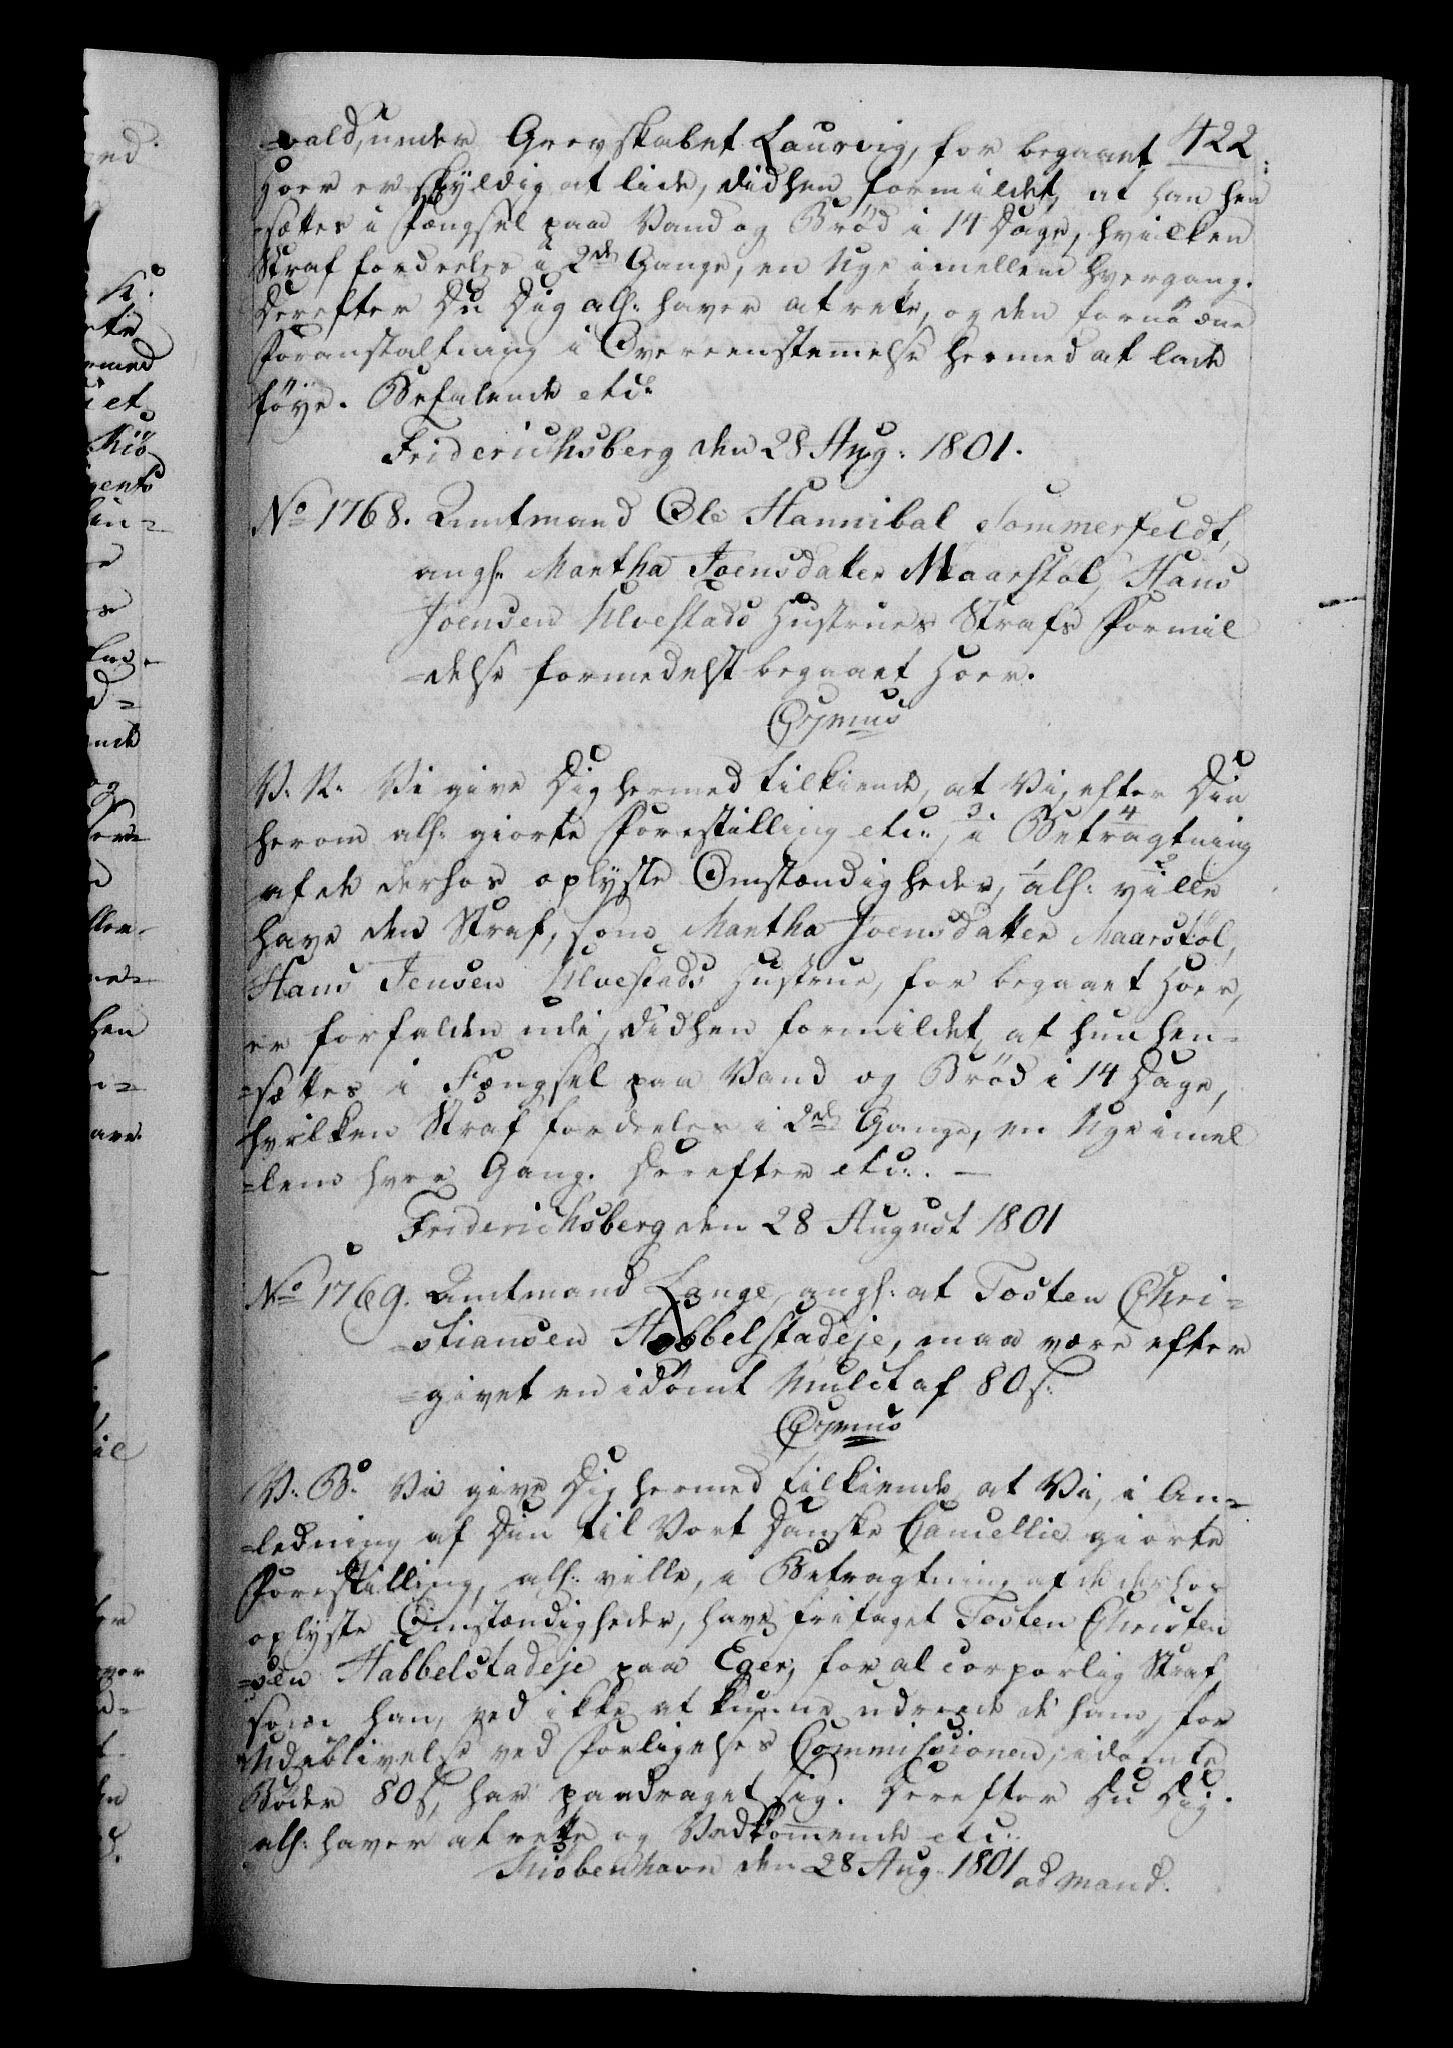 422.
-vald, under Grevskabet Laurvig, for begaaet
Hoer er skyldig at lide, didhen formildet, at han hen
-sættes i Fængsel paa Vand og Brød i 14 Dage, hvilken
Straf fordeeles i 2de Gange, en Uge imellem hvergang.
Derefter Du Dig alh: haver at rette, og den fornødne
Foranstaltning i Overeenstemmelse hermed at lade
føye. Befalende etc:
Friderichsberg den 28 Aug: 1801.
No 1768. Amtmand Ole Hannibal Sommerfeldt,
angl: Martha Joensdatter Maarstøl, Hans
Joensen Ulvestads Hustrues Strafs Formil
-delse formedelst begaaet Hoer.
V. R. Vi give Dig hermed tilkiende, at Vi, efter Din
herom alh: giorte Forestilling etc:, 3 i Betragtning 4
af de derhos oplyste Omstændigheder, 1 alh: ville 2
have den Straf, som Martha Joensdatter Maarstøl,
Hans Jensen Ulvestads Hustrue, for begaaet Hoer,
er forfalden udi, didhen formildet, at hun hen-
-sættes i Fængsel paa Vand og Brød i 14 Dage,
hvilken Straf fordeeles i 2de Gange, en Uge imel
-lem hver Gang. Derefter etc:. —
Friderichsberg den 28 August 1801
No 1769. Amtmand Lange, angl: at Tosten Chri-
-stiansen Habbelstadeje, maa være efter
-givet en idømt Mulct af 80 s:
V. B. Vi give Dig hermed tilkiende, at Vi, i An-
-ledning af Din til Vort Danske Cancellie giorte
Forestilling, alh: ville, i Betragtning af de derhos
oplyste Omstændigheder, have fritaget Tosten Christen
-sen Habbelstadeje paa Eger, for al corporlig Straf
som han, ved ikke at kunne udrede de ham, for
Udeblivelse ved Forligelses Commissionen, idømte
Bøder 80 s, har paadraget sig. Derefter Du Dig
alh: haver at rette og Vedkommende etc:
Kiøbenhavn den 28 Aug. 1801 ad Mand.